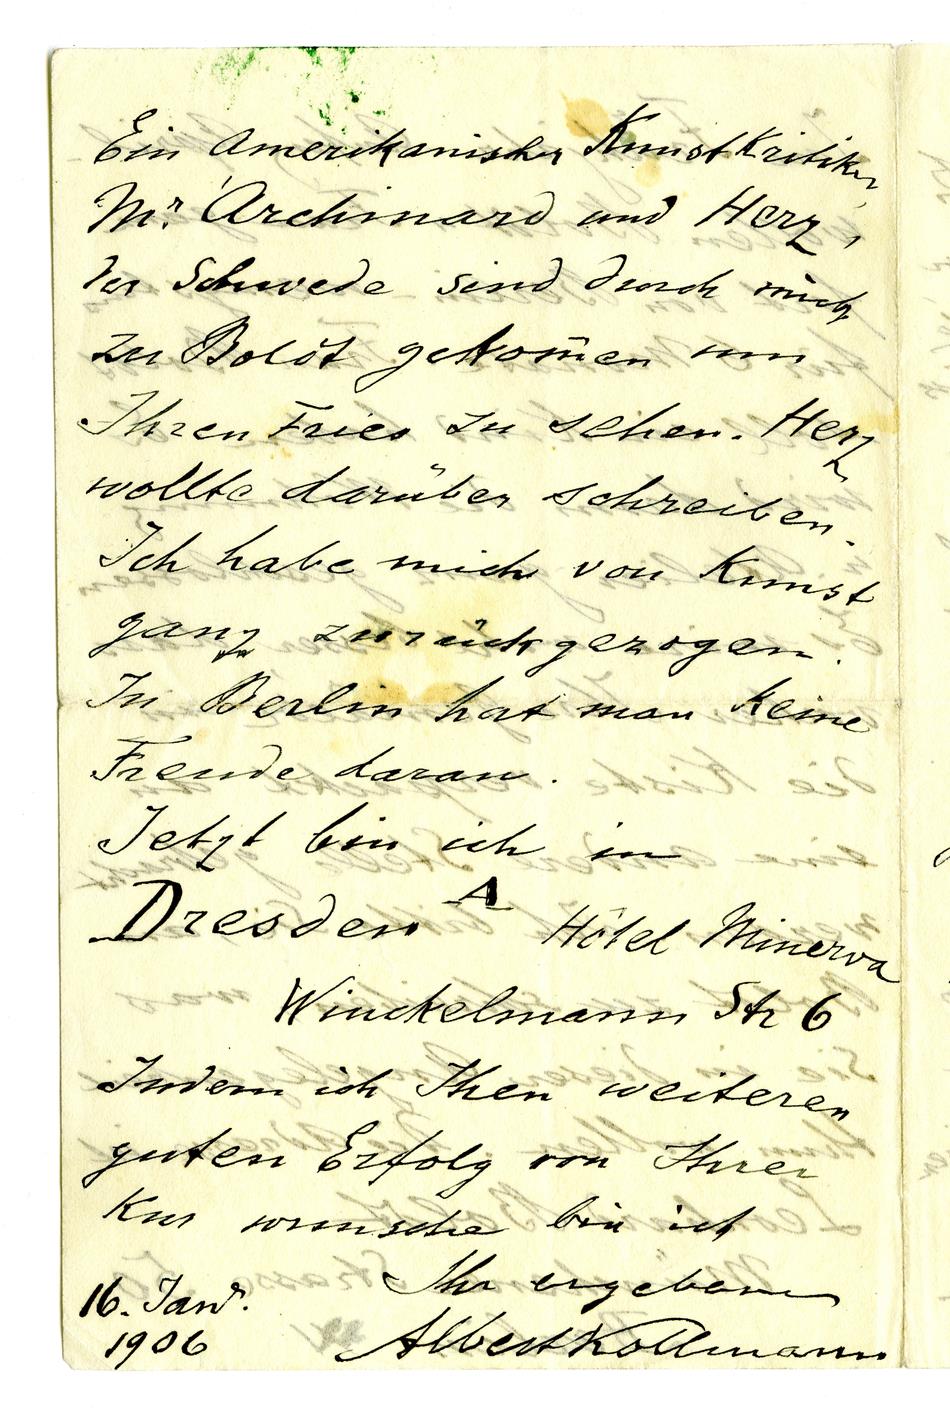 Ein Amerikanischer Kunst Kritiker,
Mr. Archinard und Herz,
der Schwede sind durch mich
zu Boldt gekom̄en um
Ihren Fries zu sehen. Herz
wollte darüber schreiben.
Ich habe mich von Kunst
ganz zurückgezogen.
In Berlin hat man keine
Freude daran.
Jetzt bin ich in
Dresden A Hôtel Minerva
Winckelmann Str 6
Indem ich Ihen weiteren
guten Erfolg von Ihrer
Kur wünsche bin ich
Ihr ergebener
16. Janr.
1906 Albert Kollmann